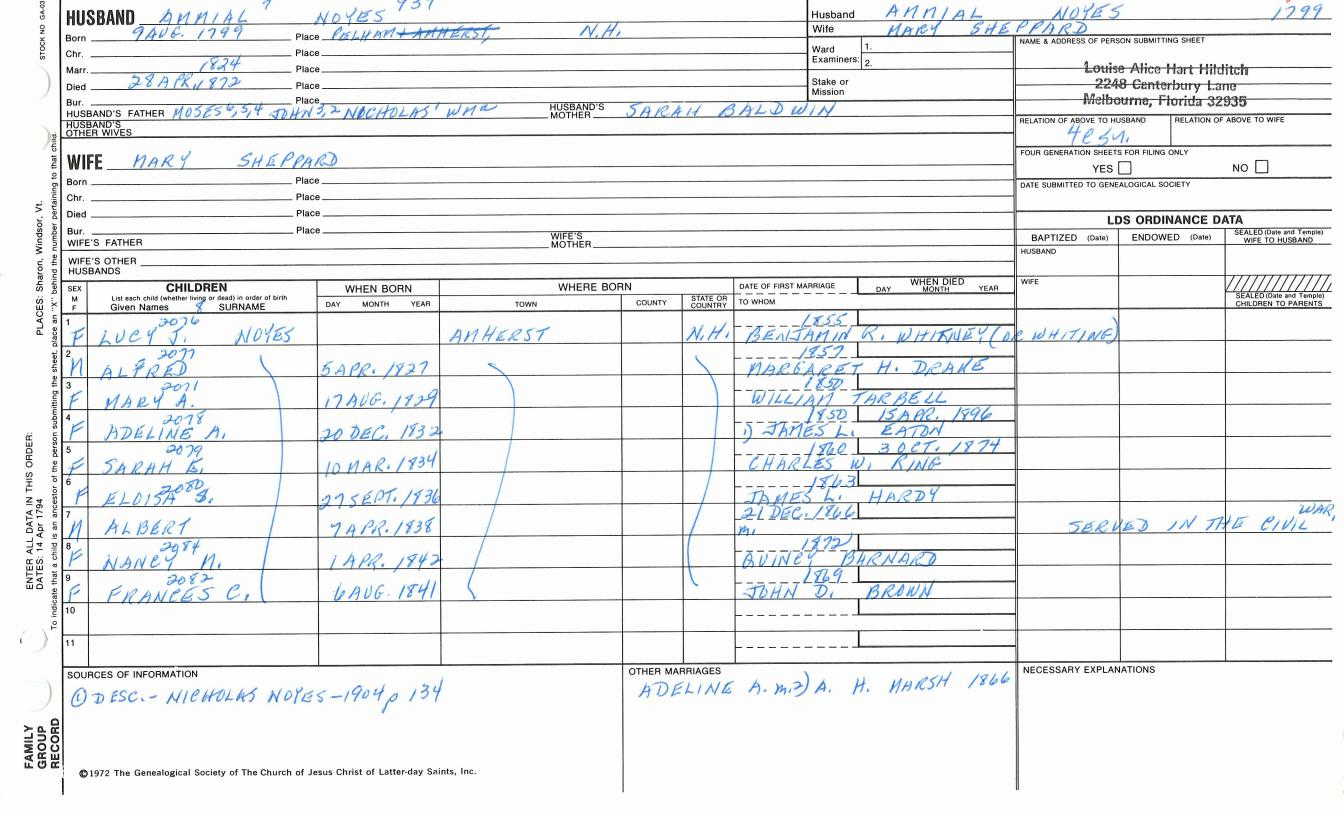 HUSBAND AMMIAL NOYES
Husband AMMIAL NOYES 1799
Wife MARY SHEPPARD
Born 9 AUG. 1799 Place PELHAM AMHERST, N.H.
Chr. Place
Marr. 1824 Place
Died 28 APR, 1872 Place
Bur. Place
Ward Examiners: 1.
2.
Stake or Mission
NAME & ADDRESS OF PERSON SUBMITTING SHEET
Louise Alice Hart Hilditch
2248 Canterbury Lane
Melbourne, Florida 32935
HUSBAND'S FATHER MOSES 6,5,4 JOHN 3,2 NOCHOLAS' WM
HUSBAND'S MOTHER SARAH BALDWIN
HUSBAND'S OTHER WIVES
RELATION OF ABOVE TO HUSBAND
RELATION OF ABOVE TO WIFE
FOUR GENERATION SHEETS FOR FILING ONLY
YES NO
DATE SUBMITTED TO GENEALOGICAL SOCIETY
WIFE MARY SHEPPARD
Born Place
Chr. Place
Died Place
Bur. Place
WIFE'S FATHER
WIFE'S MOTHER
WIFE'S OTHER HUSBANDS
LDS ORDINANCE DATA
BAPTIZED (Date) ENDOWED (Date) SEALED (Date and Temple) WIFE TO HUSBAND
HUSBAND
WIFE
SEALED (Date and Temple) CHILDREN TO PARENTS
SEX M F
CHILDREN
List each child (whether living or dead) in order of birth
Given Names 8 SURNAME
WHEN BORN
DAY MONTH YEAR
WHERE BORN
TOWN COUNTY STATE OR COUNTRY
DATE OF FIRST MARRIAGE
TO WHOM
WHEN DIED
DAY MONTH YEAR
2076 1855
1 F LUCY J. NOYES AMHERST N.H. BENJAMIN R. WHITNEY (OR WHITING)
2077 1857
2 M ALFRED 5 APR. 1827 MARGARET H. DRAKE
2071 1850
3 F MARY A. 17 AUG. 1829 WILLIAM TARBELL
2078 1850 15 APR. 1896
4 F ADELINE A. 20 DEC. 1832 1) JAMES L. EATON
2079 1860 3 OCT. 1874
5 F SARAH E. 10 MAR. 1834 CHARLES W. RING
2080 1863
6 F ELOISA S. 27 SEPT. 1836 JAMES L. HARDY
21 DEC. 1866
7 M ALBERT 7 APR. 1838 m. SERVED IN THE CIVIL WAR,
2084 1872
8 F NANCY M. 1 APR. 1842 QUINCY BARNARD
2082 1869
9 F FRANCES C. 6 AUG. 1841 JOHN D. BROWN
10
11
SOURCES OF INFORMATION
① DESC. - NICHOLAS NOYES - 1904 p 134
OTHER MARRIAGES
ADELINE A. m. 2) A. H. MARSH 1866
NECESSARY EXPLANATIONS
©1972 The Genealogical Society of The Church of Jesus Christ of Latter-day Saints, Inc.
FAMILY GROUP RECORD
ENTER ALL DATA IN THIS ORDER:
DATES: 14 Apr 1794
PLACES: Sharon, Windsor, Vt.
To indicate that a child is an ancestor of the person submitting the sheet, place an "X" behind the number pertaining to that child.